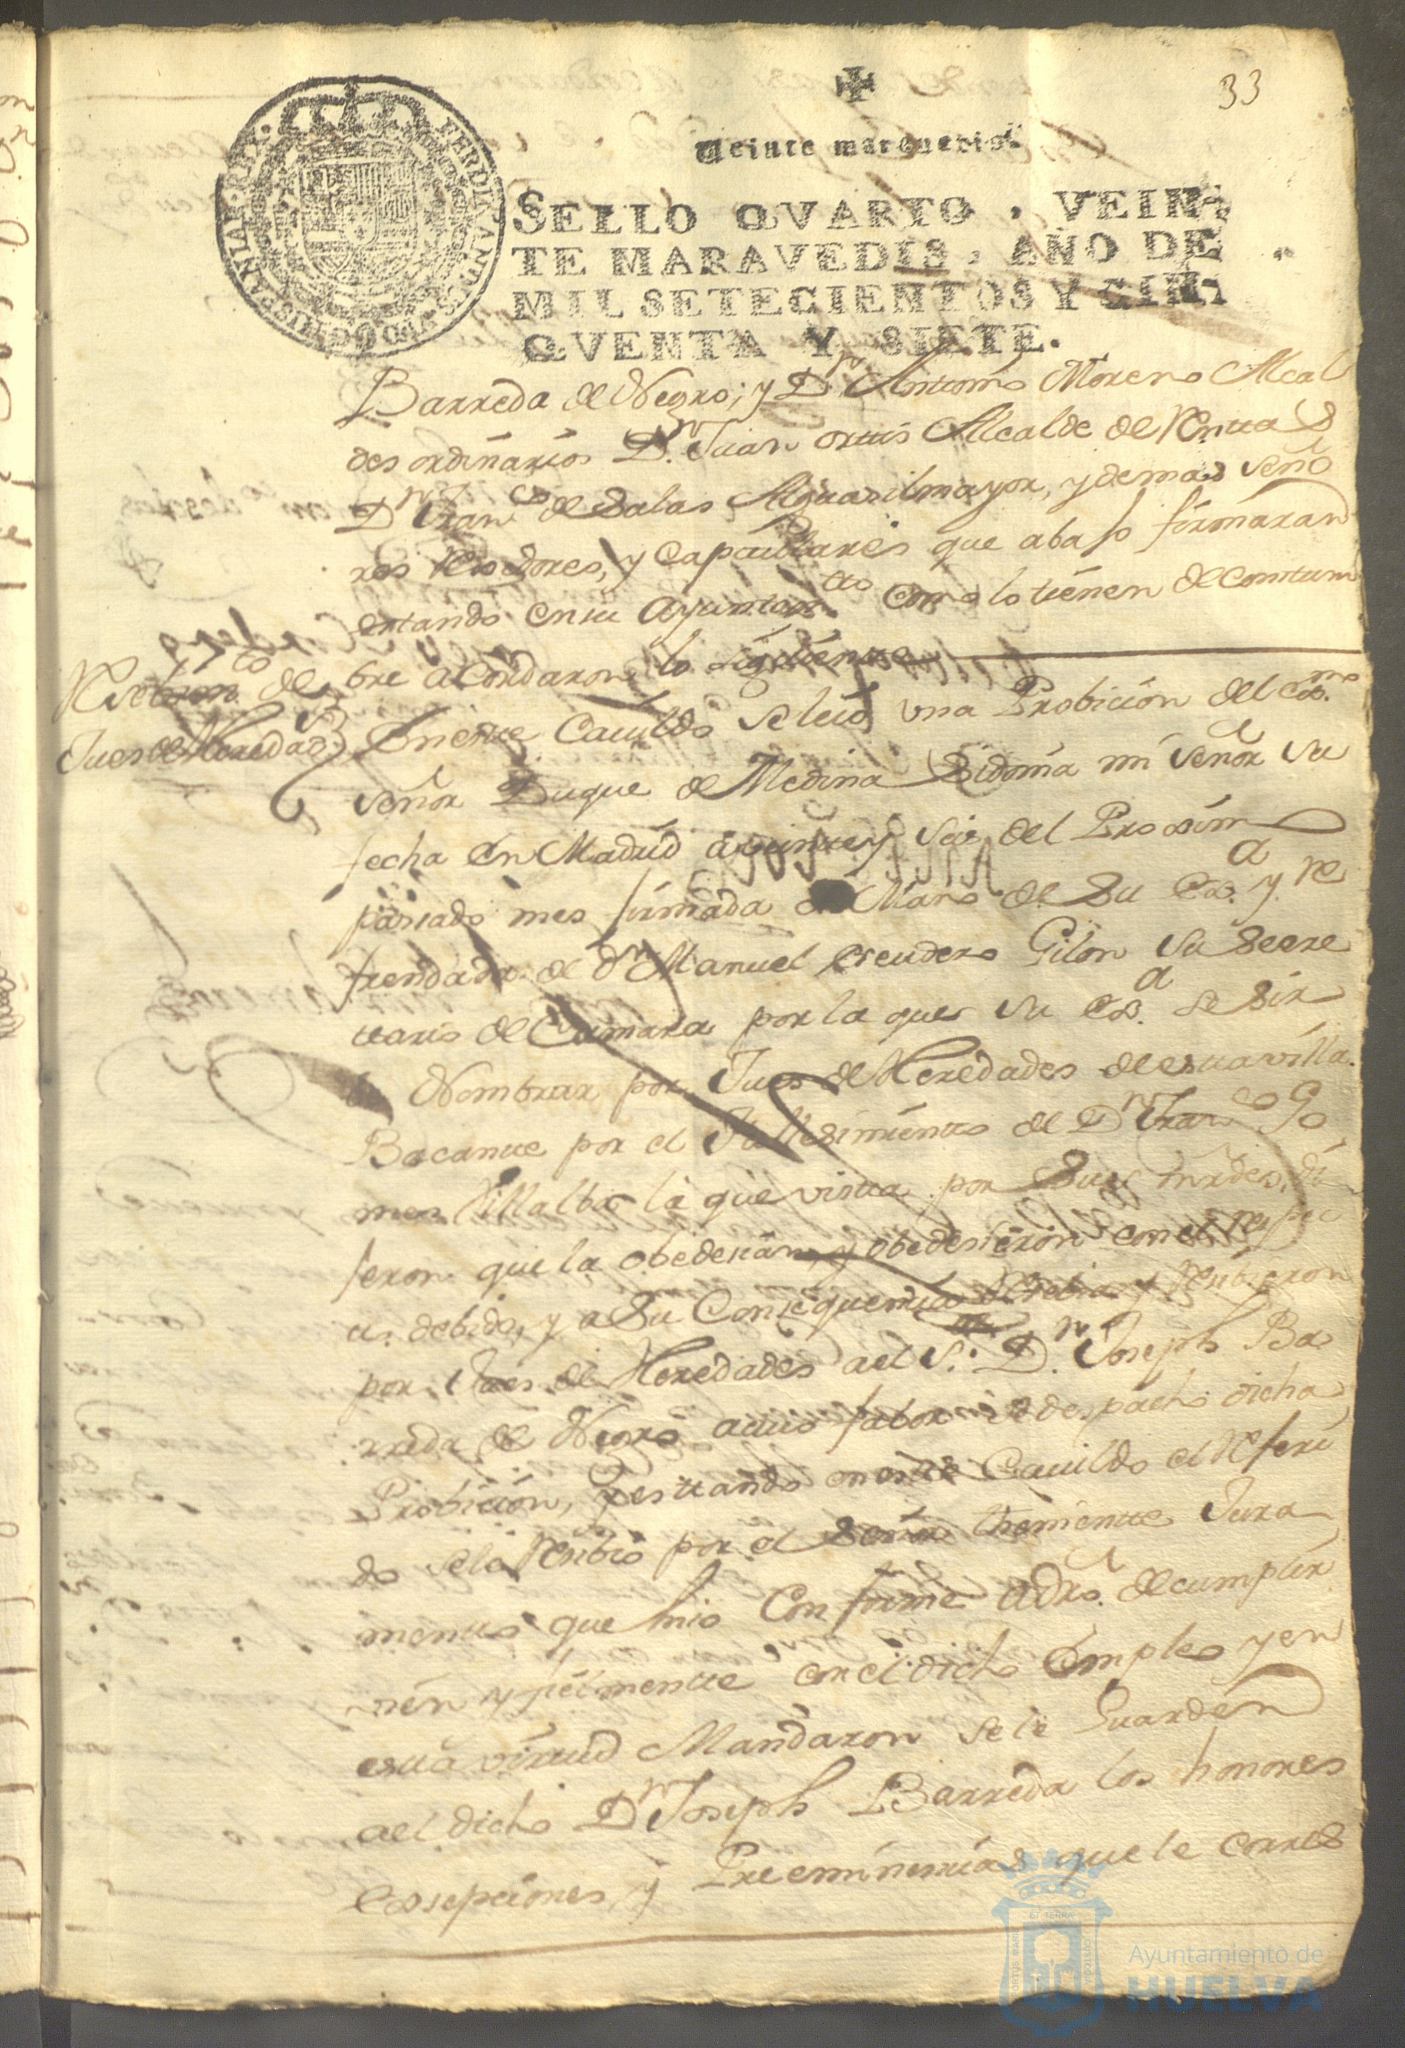 33
Veinte maravedis.
SELLO QVARTO, VEIN-
TE MARAVEDIS, AÑO DE
MIL SETECIENTOS Y CIN-
QVENTA Y SIETE.
FERDINANDUS VI D G HISPANIAR REX
Barreda de Negro; y Dn Antonio Moreno Alcal
des ordinarios Dn Juan ortis Alcalde de
Dn Franco de Salas Alguasilmayor, y demas Seño
res Rexidores, y Capitulares que abajo firmaran
estando en su Ayuntamto como lo tienen de costum
bre acordaron lo siguiente
Resebimto de
Jues de Heredads
En este Cavildo se leio una Probicion del Exmo
señor Duque de Medina Sidonia mi señor su
fecha en Madrid a veinte y seis del Proximo
passado mes firmada de Mano de Su Exa y re
frendada de dn Manuel escudero Gilon su Secre
tario de Camara por la que Su Exa se Sir
be Nombrar por Jues de Heredades de esta villa
Bacante por el fallesimiento de Dn Franco Go
mes Villalba la que vista por Sus mrdes di
jeron que la obedesian, y obedesieron con el respec
to debido, y a Su Consequencia Resibieron
por Jues de Heredades ael Sr. Dn Joseph Ba
rreda de Negro a cuio fabor se despacho dicha
Probicion, y estando en este Cavildo el Referi
do se le Resibio por el Señor theniente Jura
mento que hiso Conforme a dro. de cumplir
vien y fielmente con el dicho Empleo y en
esta virtud Mandaron se le Guarden
ael dicho Dn Joseph Barreda los honores
Exsepciones, y Preeminencias que le corres
Ayuntamiento de
HUELVA